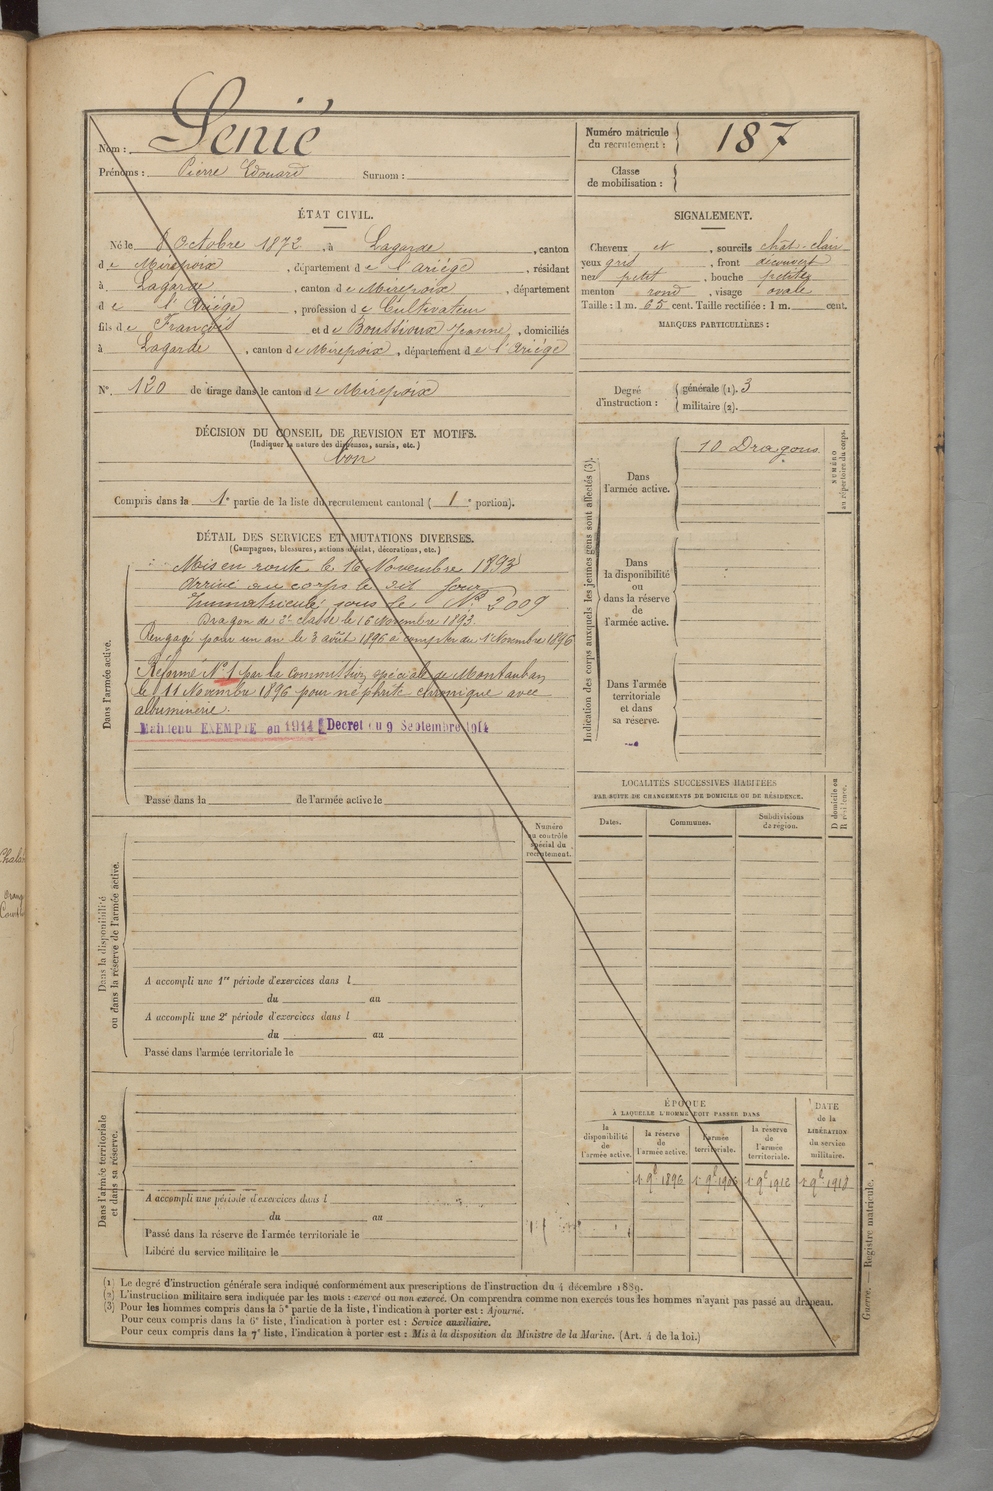 Nom : Senié
Prénoms : Pierre Edouard Surnom :
Numéro matricule du recrutement : 187
Classe de mobilisation :
ÉTAT CIVIL.
Né le 8 Octobre 1872, à Lagarde, canton
de Mirepoix, département de l'Ariége, résidant
à Lagarde, canton de Mirepoix, département
de l'Ariége, profession de Cultivateur
fils de François et de Boussioux Jeanne, domiciliés
à Lagarde, canton de Mirepoix, département de l'Ariége
N° 120 de tirage dans le canton de Mirepoix
DÉCISION DU CONSEIL DE REVISION ET MOTIFS.
(Indiquer la nature des dispenses, sursis, etc.)
bon
Compris dans la 1e partie de la liste du recrutement cantonal ( 1e portion).
SIGNALEMENT.
Cheveux et, sourcils chât-clair
yeux gris, front découvert
nez petit, bouche petite
menton rond, visage ovale
Taille : 1 m. 65 cent. Taille rectifiée : 1 m. cent.
MARQUES PARTICULIÈRES :
Degré d'instruction : générale (1). 3
militaire (2).
DÉTAIL DES SERVICES ET MUTATIONS DIVERSES.
(Campagnes, blessures, actions d'éclat, décorations, etc.)
Dans l'armée active.
Mis en route le 16 Novembre 1893
Arrivé au corps le dit jour
Immatriculé sous le N° 2009
Dragon de 2e classe le 16 Novembre 1893.
Rengagé pour un an le 3 août 1896 à compter du 1er Novembre 1896
Réformé N° 1 par la commission spéciale de Montauban
le 11 Novembre 1896 pour néphrite chronique avec
albuminerie.
Maintenu EXEMPTE en 1914 Decret du 9 Septembre 1914
Passé dans la de l'armée active le
Indication des corps auxquels les jeunes gens sont affectés (3).
Dans l'armée active.
10 Dragons
NUMÉRO au répertoire du corps.
Dans la disponibilité ou dans la réserve de l'armée active.
Dans l'armée territoriale et dans sa réserve.
LOCALITÉS SUCCESSIVES HABITÉES
PAR SUITE DE CHANGEMENTS DE DOMICILE OU DE RÉSIDENCE.
D domicile ou R résidence.
Dates. Communes. Subdivisions de région.
Numéro au contrôle spécial du recrutement.
Dans la disponibilité ou dans la réserve de l'armée active.
A accompli une 1re période d'exercices dans l
du au
A accompli une 2e période d'exercices dans l
du au
Passé dans l'armée territoriale le
Dans l'armée territoriale et dans sa réserve.
A accompli une période d'exercices dans l
du au
Passé dans la réserve de l'armée territoriale le
Libéré du service militaire le
ÉPOQUE
À LAQUELLE L'HOMME DOIT PASSER DANS
la disponibilité de l'armée active.
la réserve de l'armée active.
l'armée territoriale.
la réserve de l'armée territoriale.
DATE de la LIBÉRATION du service militaire.
1er 9bre 1896 1er 9bre 1906 1er 9bre 1912 1er 9bre 1918
(1) Le degré d'instruction générale sera indiqué conformément aux prescriptions de l'instruction du 4 décembre 1889.
(2) L'instruction militaire sera indiquée par les mots : exercé ou non exercé. On comprendra comme non exercés tous les hommes n'ayant pas passé au drapeau.
(3) Pour les hommes compris dans la 5e partie de la liste, l'indication à porter est : Ajourné.
Pour ceux compris dans la 6e liste, l'indication à porter est : Service auxiliaire.
Pour ceux compris dans la 7e liste, l'indication à porter est : Mis à la disposition du Ministre de la Marine. (Art. 4 de la loi.)
Guerre. — Registre matricule. 1